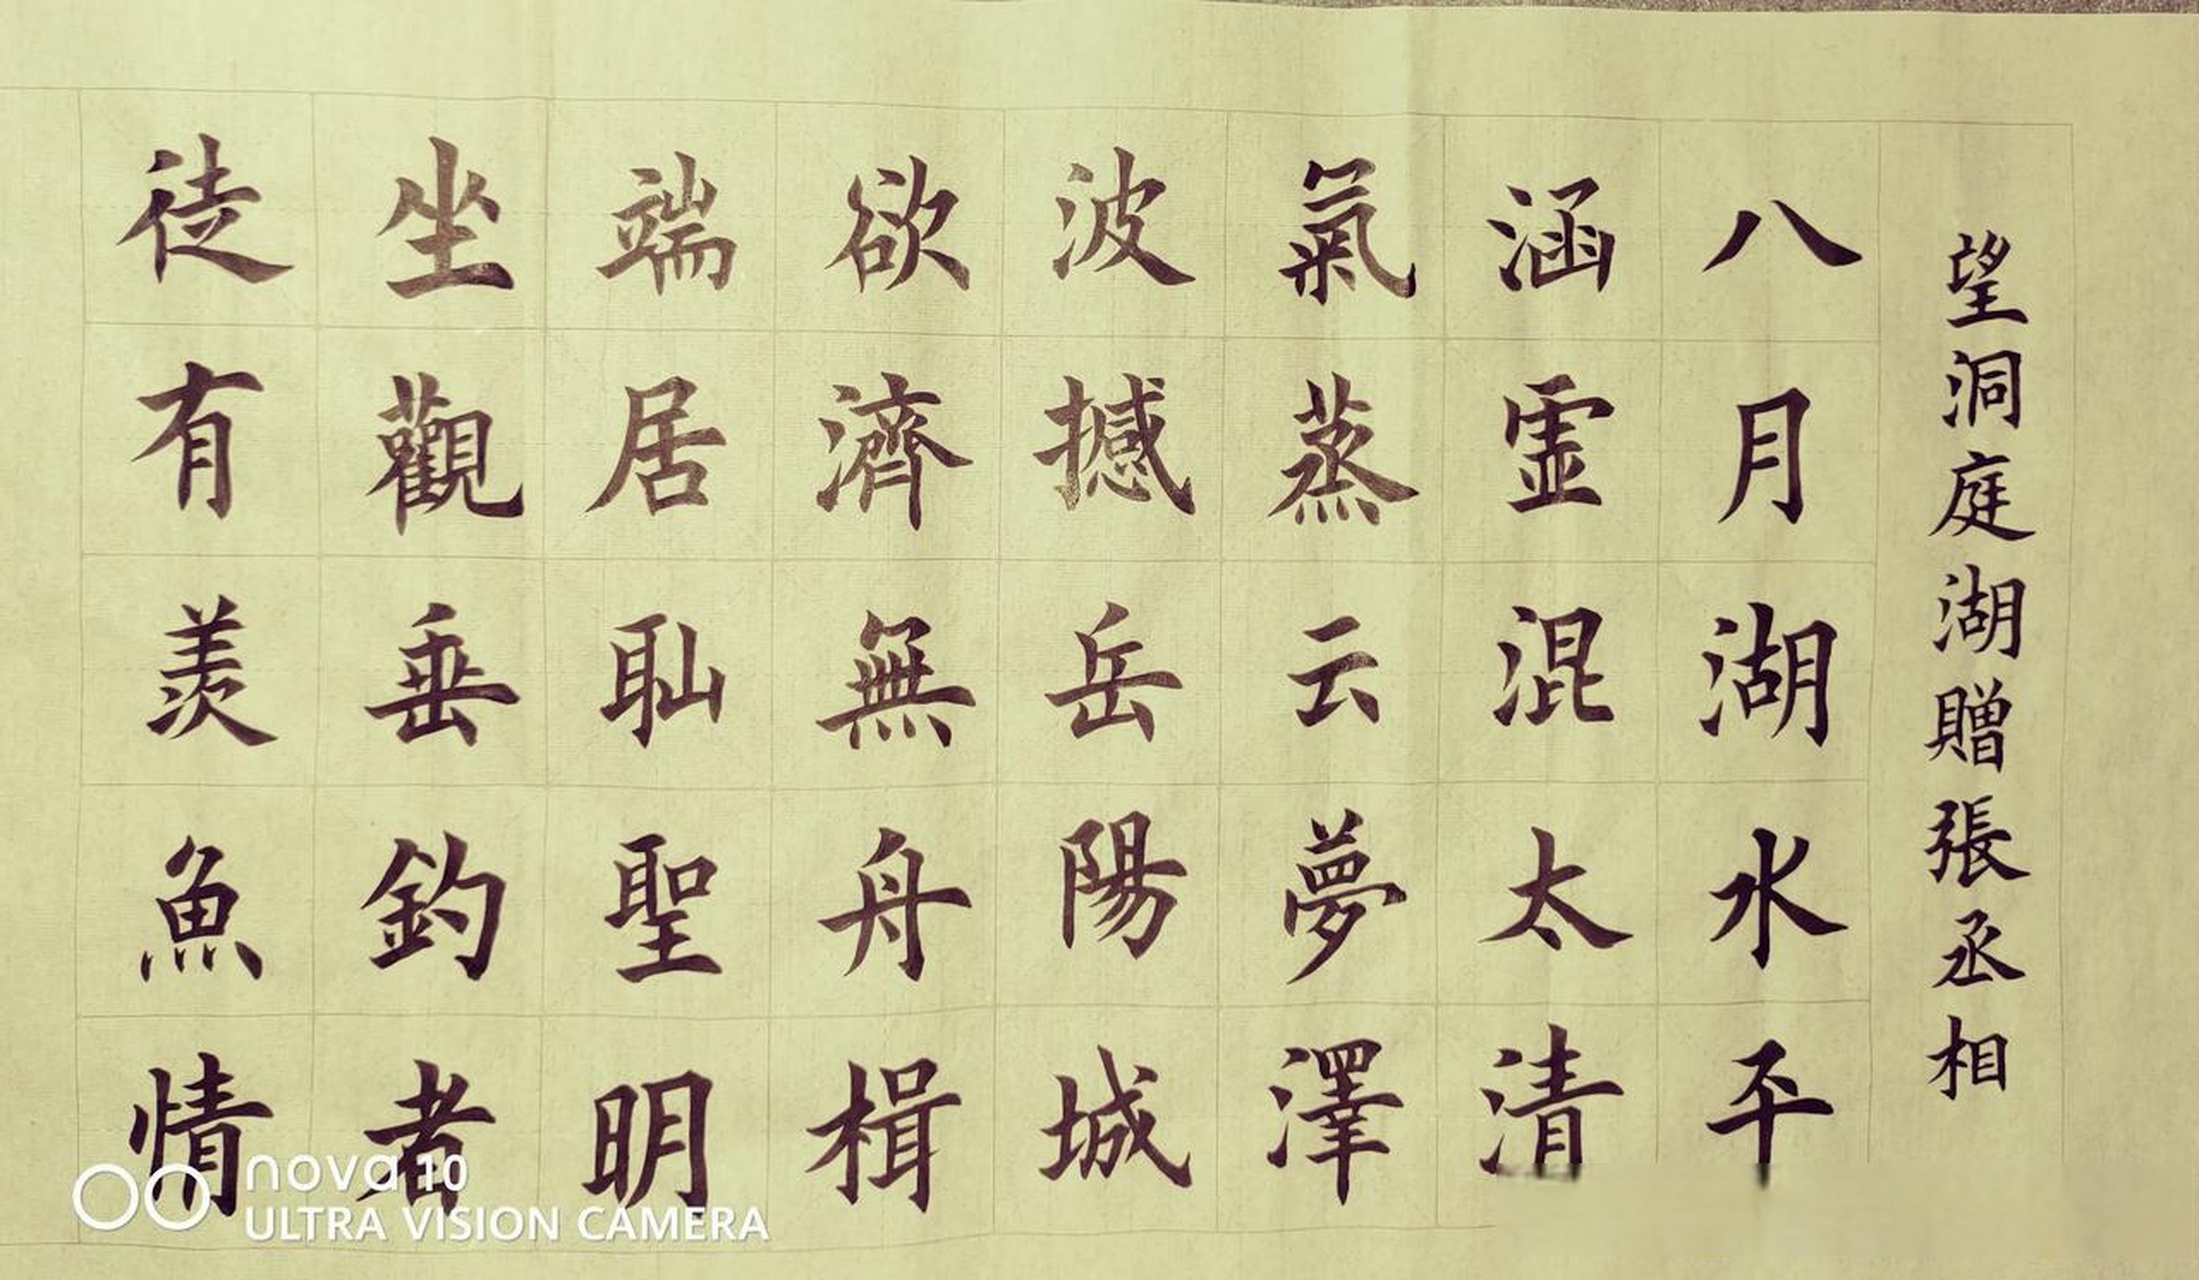 望洞庭湖贈張丞相
八月湖水平
涵霊混太清
氣蒸云夢澤
波撼岳陽城
欲濟無舟楫
端居耻聖明
坐觀垂釣者
徒有羨魚情
nova 10
ULTRA VISION CAMERA